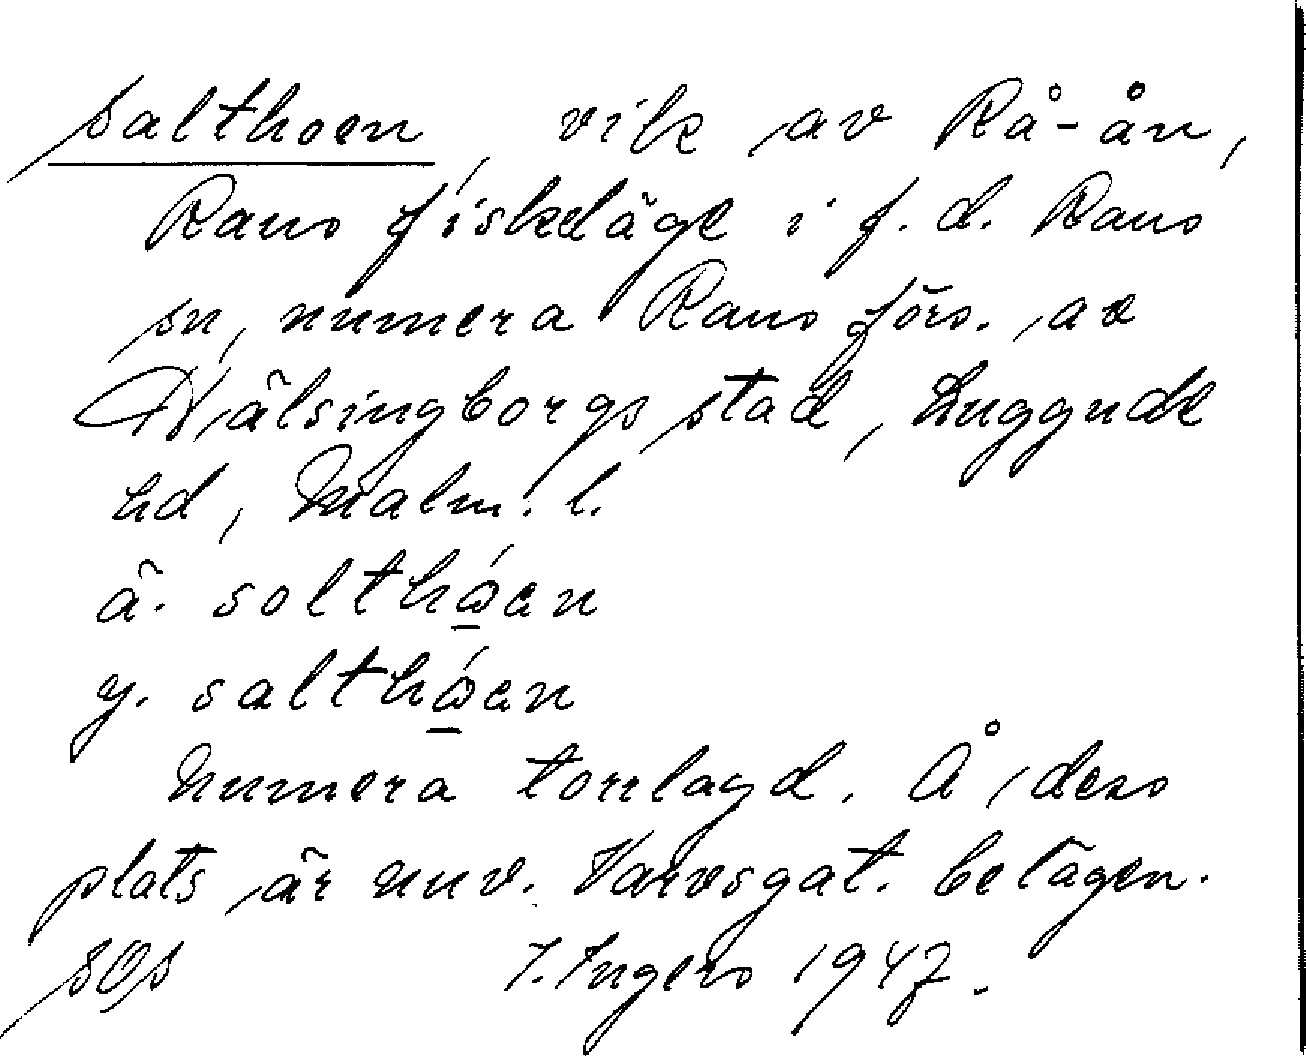 Salthoen, vik av Rå-ån,
Raus fiskeläge i f.d. Raus
sn, numera Raus förs. av
Hälsingborgs stad, Luggude
hd, Malm. l.
ä. solthǿen
y. salthǿen
Numera torrlagd. Å dess
plats är nuv. Varvsgat. belägen.
SOs I. Ingers 1947.